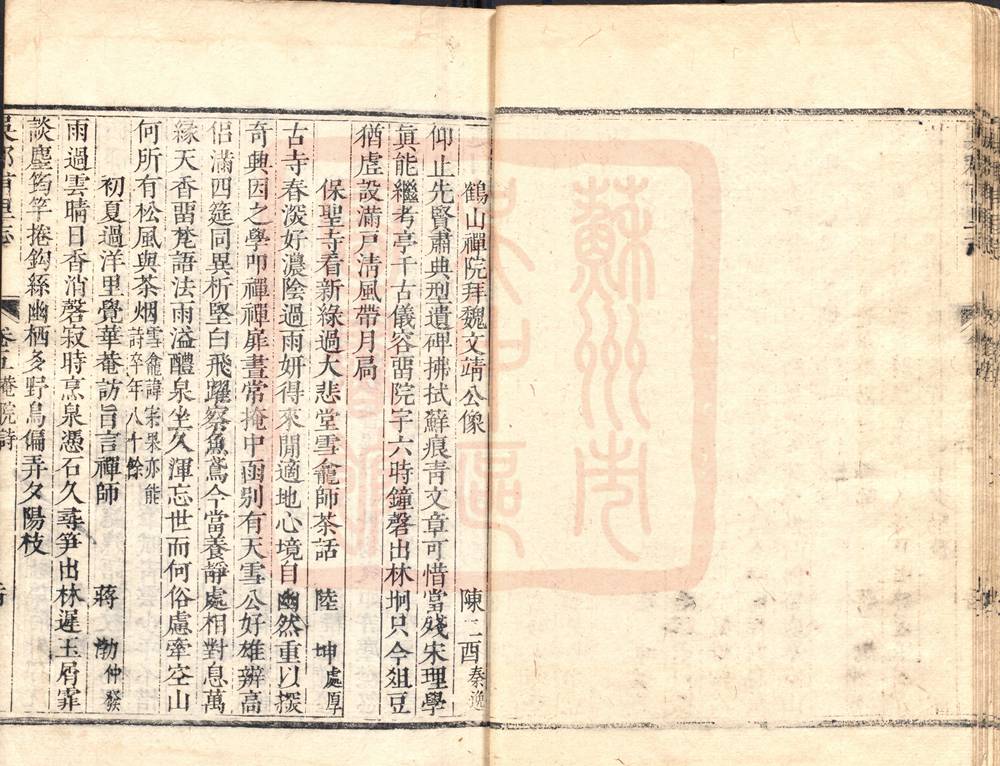 鶴山禪院拜魏文靖公像 陳二酉秦逸
仰止先賢肅典型遺碑拂拭蘚痕青文章可惜當殘宋理學
眞能繼考亭千古儀容畱院宇六時鐘磬出林坰只今爼豆
猶虗設滿戸淸風帶月扃
保聖寺看新綠過大悲堂雪龕師茶話 陸坤處厚
古寺春深好濃陰過雨妍得來閒適地心境自幽然重以探
奇興因之學卭禪禪扉晝常掩中函别有天雪公好雄辨高
侣滿四筵同異析堅白飛躍察魚鳶今當養靜處相對息萬
緣天香畱梵語法雨溢醴泉坐久渾忘世而何俗慮牽空山
何所有松風與茶烟雪龕諱宗杲亦能詩卒年八十餘
初夏過洋里覺華菴訪旨言禪師 蔣渤仲發
雨過雲晴日香消磬寂時烹泉憑石久尋笋出林遲玉屑霏
談麈筠竿捲鈎絲幽栖多野鳥偏弄夕陽枝
吳郡甫里志 卷五菴院詩
蘇州市